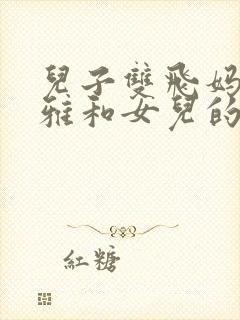 兒子雙飛妈
雅和女兒的
紅糖